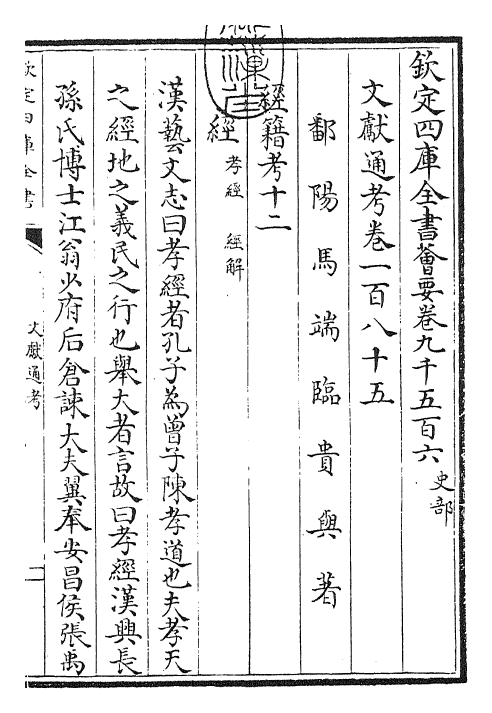 欽定四庫全書薈要卷九千五百六 史部
文獻通考卷一百八十五
鄱陽馬端臨貴與著
經籍考十二
經 孝經 經解
漢藝文志曰孝經者孔子為曾子陳孝道也夫孝天
之經地之義民之行也舉大者言故曰孝經漢興長
孫氏博士江翁少府后倉諫大夫翼奉安昌侯張禹
欽定四庫全書
文獻通考